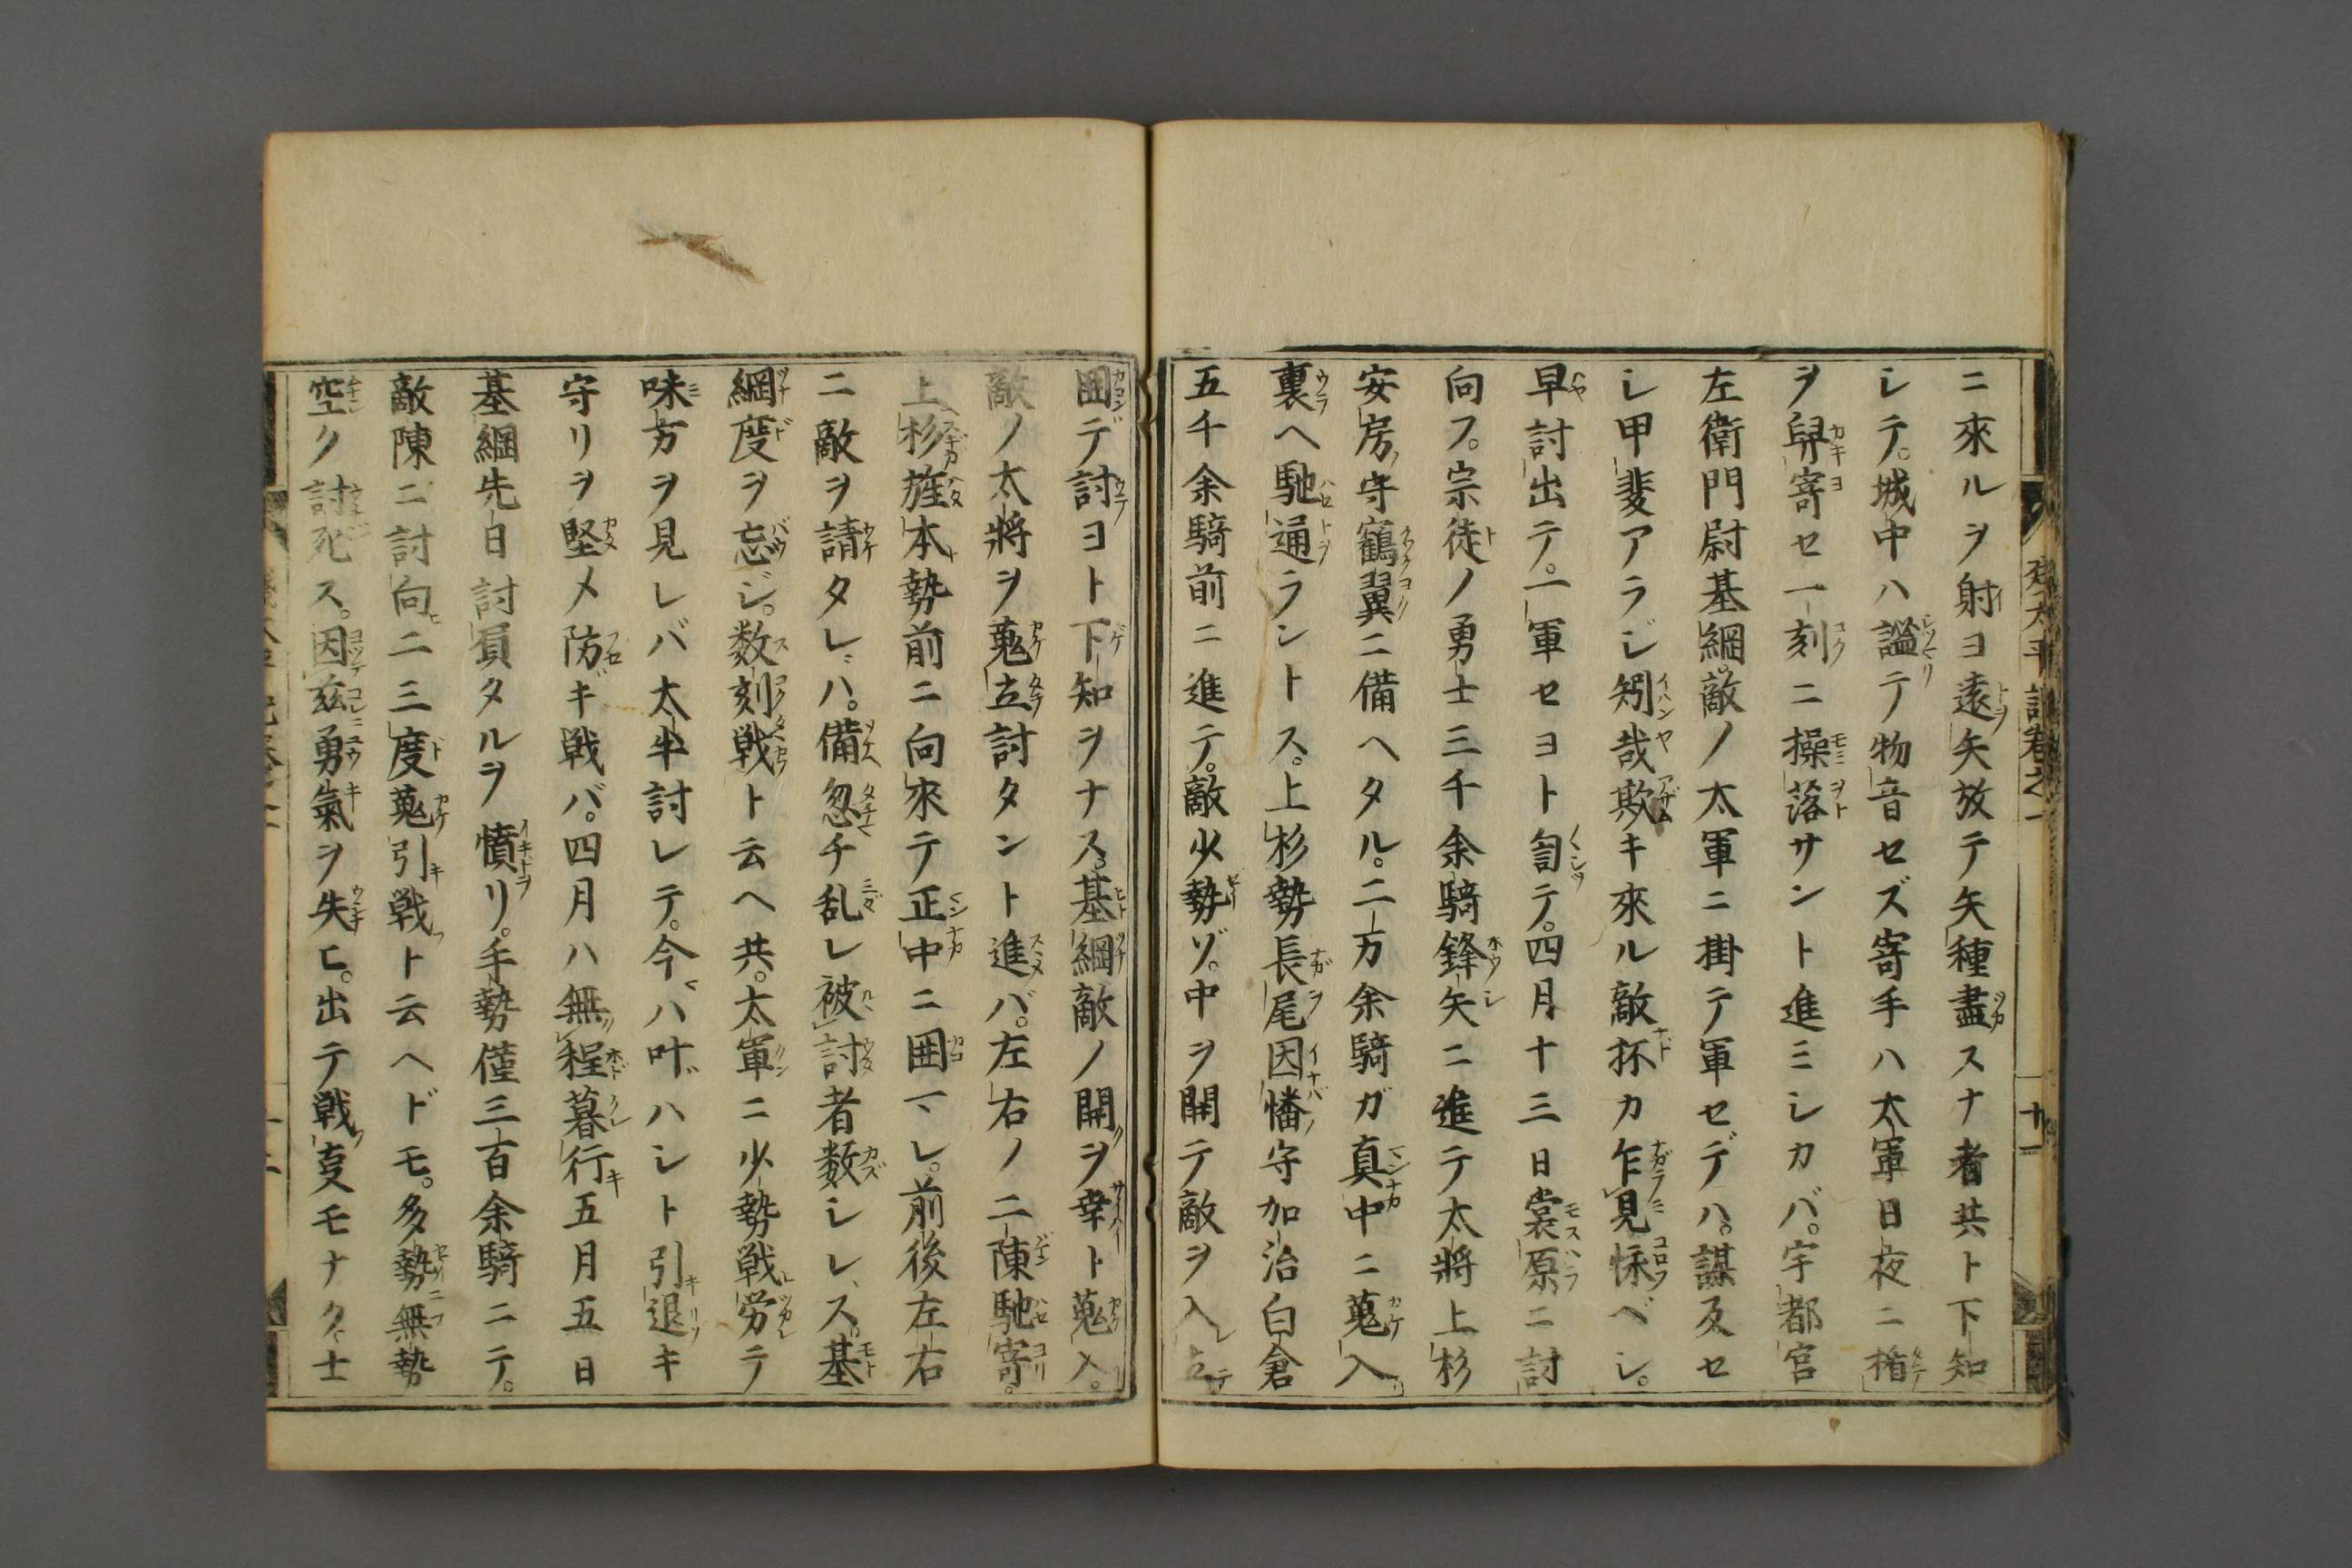 ニ來ルヲ射ヨ遠矢放テ矢種盡スナ者共ト下知
シテ。城中ハ謐テ物音セズ寄手ハ太軍日夜ニ楯
ヲ舁寄セ一刻ニ操落サント進ミシカバ。宇都宮
左衛門尉基綱。敵ノ太軍ニ掛テ軍セデハ。謀及セ
シ甲斐アラジ矧哉欺キ來ル敵抔カ乍見怺ベシ。
早討出テ。一軍セヨト訇テ。四月十三日裳原ニ討
向フ。宗徒ノ勇士三千余騎鋒矢ニ進テ太將上杉
安房守鶴翼ニ備ヘタル。二万余騎ガ真中ニ蒐入
裏ヘ馳通ラントス。上杉勢長尾因幡守加治白倉
五千余騎前ニ進テ。敵少勢ゾ。中ヲ開テ敵ヲ入立
囲デ討ヨト下知ヲナス。基綱敵ノ開ヲ幸ト蒐入。
敵ノ太將ヲ蒐立討タント進バ。左右ノ二陳馳寄。
上杉旌本勢前ニ向來テ正中ニ囲マレ。前後左右
ニ敵ヲ請タレバ。備忽チ乱レ被討者数シレス。基
綱度ヲ忘ジ。数刻戦ト云ヘ共。太軍ニ少勢戦労テ
味方ヲ見レバ太半討レテ。今ハ叶ハシト引退キ
守リヲ堅メ防キ戦バ。四月ハ無程暮行五月五日
基綱先日討負タルヲ憤リ。手勢僅三百余騎ニテ。
敵陳ニ討向二三度蒐引戦ト云ヘドモ。多勢無勢
空ク討死ス。因茲勇氣ヲ失ヒ。出テ戦叓モナク士
十一